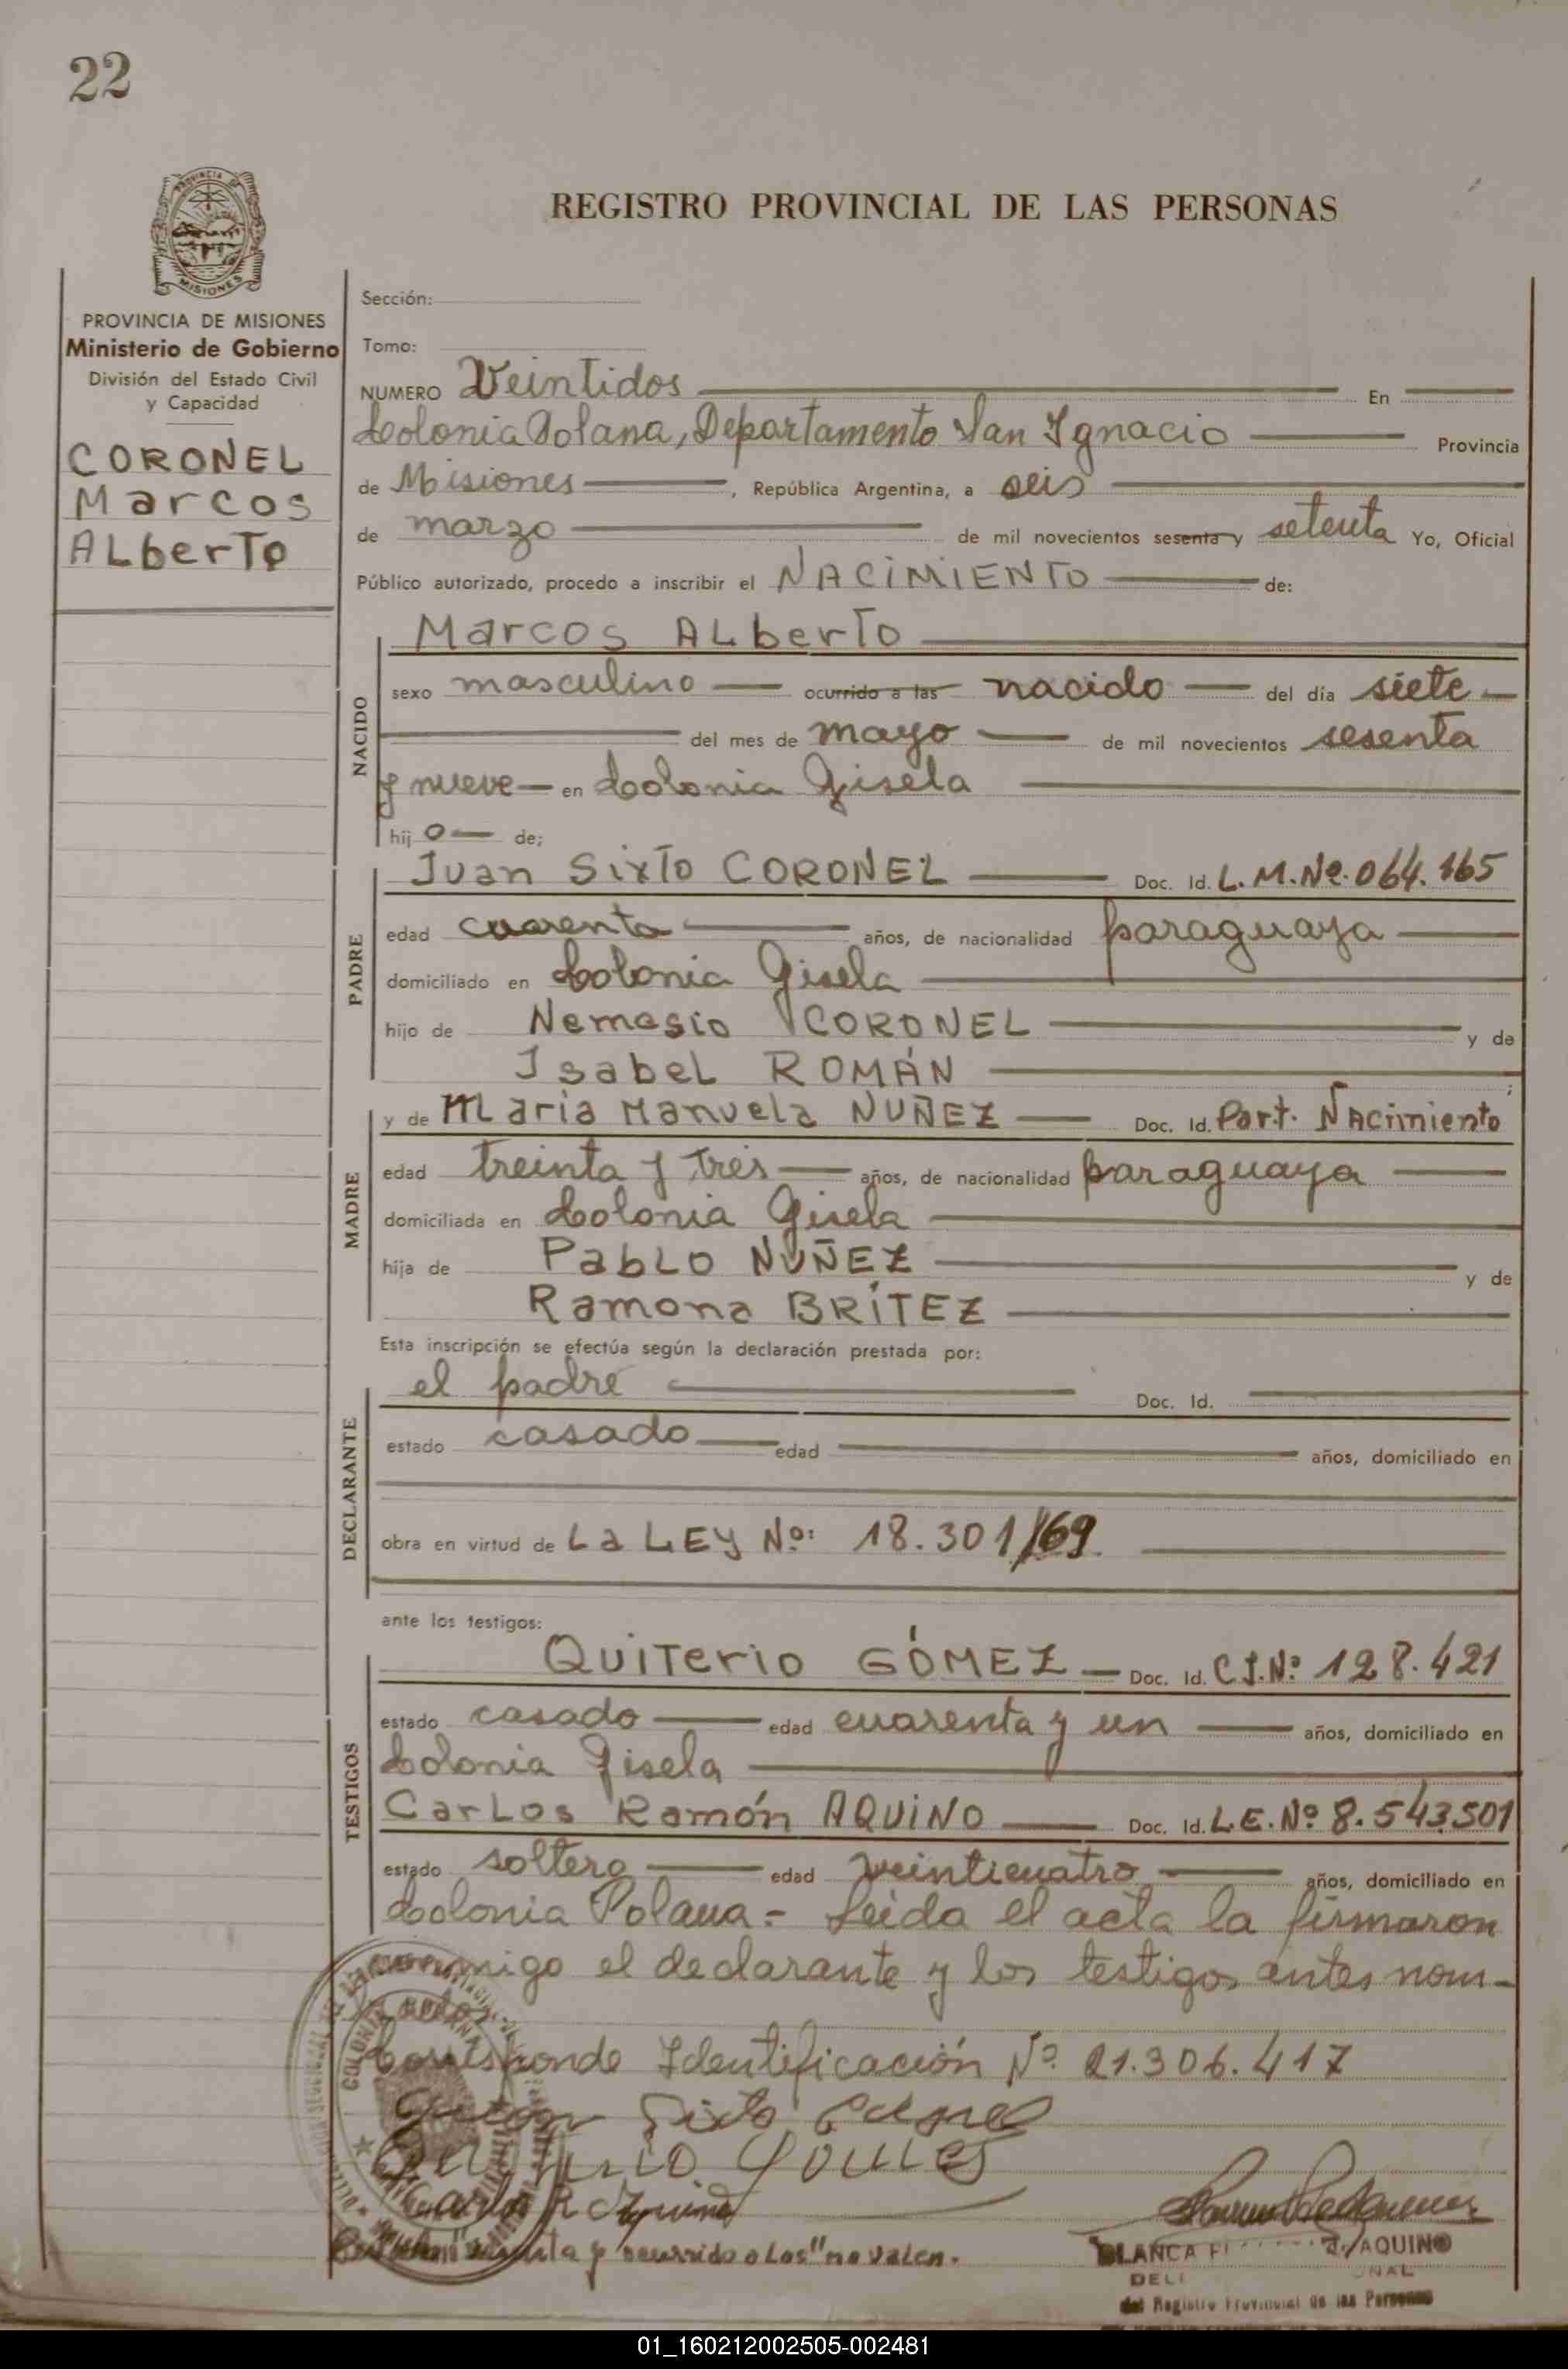 22
PROVINCIA DE
MISIONES
REGISTRO PROVINCIAL DE LAS PERSONAS
PROVINCIA DE MISIONES
Ministerio de Gobierno
División del Estado Civil
y Capacidad
CORONEL
Marcos
ALberTo
Sección:
Tomo:
NUMERO Veintidos En
Colonia Polana, Departamento San Ignacio Provincia
de Misiones, República Argentina, a seis
de marzo de mil novecientos sesenta y setenta Yo, Oficial
Público autorizado, procedo a inscribir el NACIMIENTO de:
NACIDO
Marcos ALberTo
sexo masculino ocurrido a las nacido del día siete
del mes de mayo de mil novecientos sesenta
y nueve en Colonia Gisela
hijo de;
PADRE
Juan SixTo CORONEL Doc. Id. L.M.Nº.064.165
edad cuarenta años, de nacionalidad paraguaya
domiciliado en Colonia Gisela
hijo de Nemesio CORONEL y de
Isabel ROMÁN ;
MADRE
y de Maria Manuela NUÑEZ Doc. Id. Part. Nacimiento
edad treinta y tres años, de nacionalidad paraguaya
domiciliada en Colonia Gisela
hija de PabLo NUÑEZ y de
Ramona BRÍTEZ
Esta inscripción se efectúa según la declaración prestada por:
DECLARANTE
el padre Doc. Id.
estado casado edad años, domiciliado en
obra en virtud de La LEY Nº: 18.301/69
ante los testigos:
TESTIGOS
QuiTerio GÓMEZ Doc. Id. C.I.Nº 128.421
estado casado edad cuarenta y un años, domiciliado en
Colonia Gisela
CarLos Ramón AQUINO Doc. Id. L.E.Nº 8.543.501
estado soltero edad veinticuatro años, domiciliado en
Colonia Polana.- Leída el acta la firmaron
conmigo el declarante y los testigos antes nom-
brados
Corresponde Identificación Nº 21.306.417
Sixto
Gomes
Carlos R Aquino
y ocurrido a las" no valen.
BLANCA AQUINO
del Registro Provincial de las Personas
01_160212002505-002481